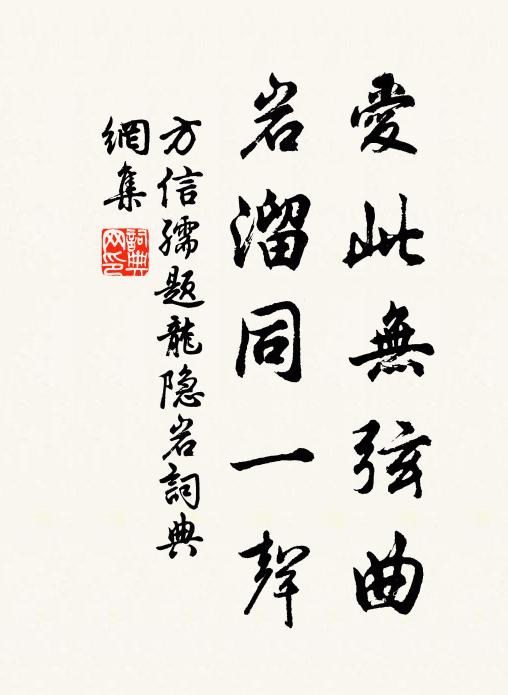 愛此無弦曲
岩溜同一聲
方信孺題龍隐岩詞典
網集
詞典網印